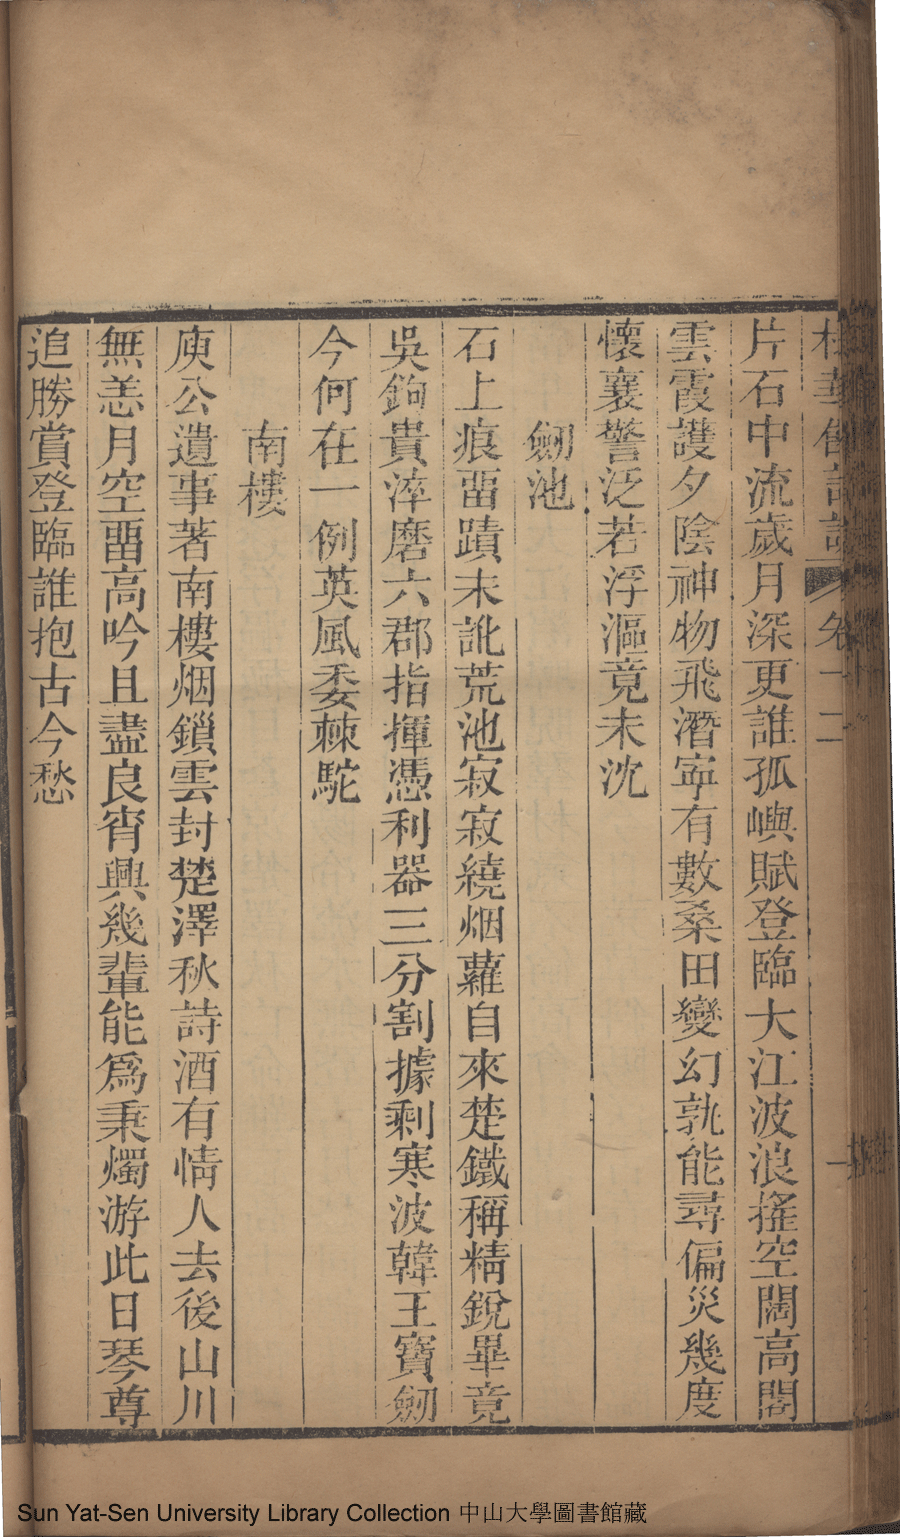 卷十二
片石中流歲月深更誰孤嶼賦登臨大江波浪搖空闊高閣
雲霞護夕陰神物飛潛寧有數桑田變幻孰能尋偏災幾度
懷襄警泛若浮漚竟未沈
劒池
石上痕畱蹟未訛荒池寂寂繞烟蘿自來楚鐵稱精銳畢竟
吳鉤貴淬磨六郡指揮憑利器三分割據剩寒波韓王寶劒
今何在一例英風委棘駝
南樓
庾公遺事著南樓烟鎖雲封楚澤秋詩酒有情人去後山川
無恙月空畱高吟且盡良宵興幾輩能爲秉燭游此日琴尊
追勝賞登臨誰抱古今愁
Sun Yat-Sen University Library Collection 中山大學圖書館藏